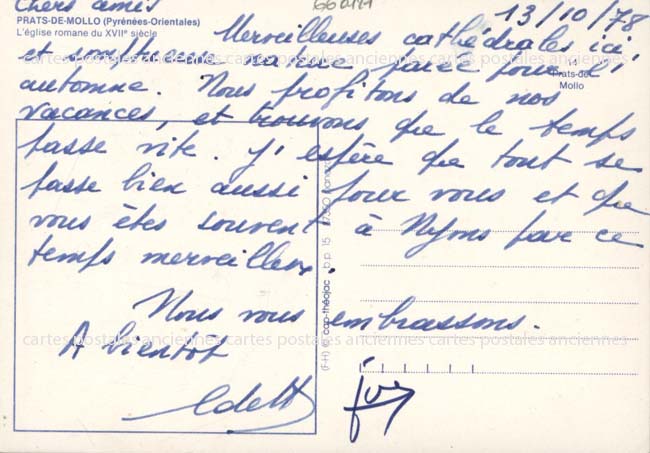 Chers amis
660191
13/10/78
PRATS-DE-MOLLO (Pyrénées-Orientales)
L'église romane du XVIIe siècle
Merveilleuses cathédrales ici,
et somptueuse nature, parée pour l'
automne. Nous profitons de nos
Prats-de
Mollo
vacances, et trouvons que le temps
passe vite. J'espère que tout se
passe bien aussi pour vous et que
vous êtes souvent à Nyons par ce
temps merveilleux.
Nous vous embrassons.
A bientôt
Odette
(F-H) © cap-théojac b.p. 15
cartes postales anciennes cartes postales anciennes cartes postales anciennes
cartes postales anciennes cartes postales anciennes cartes postales anciennes